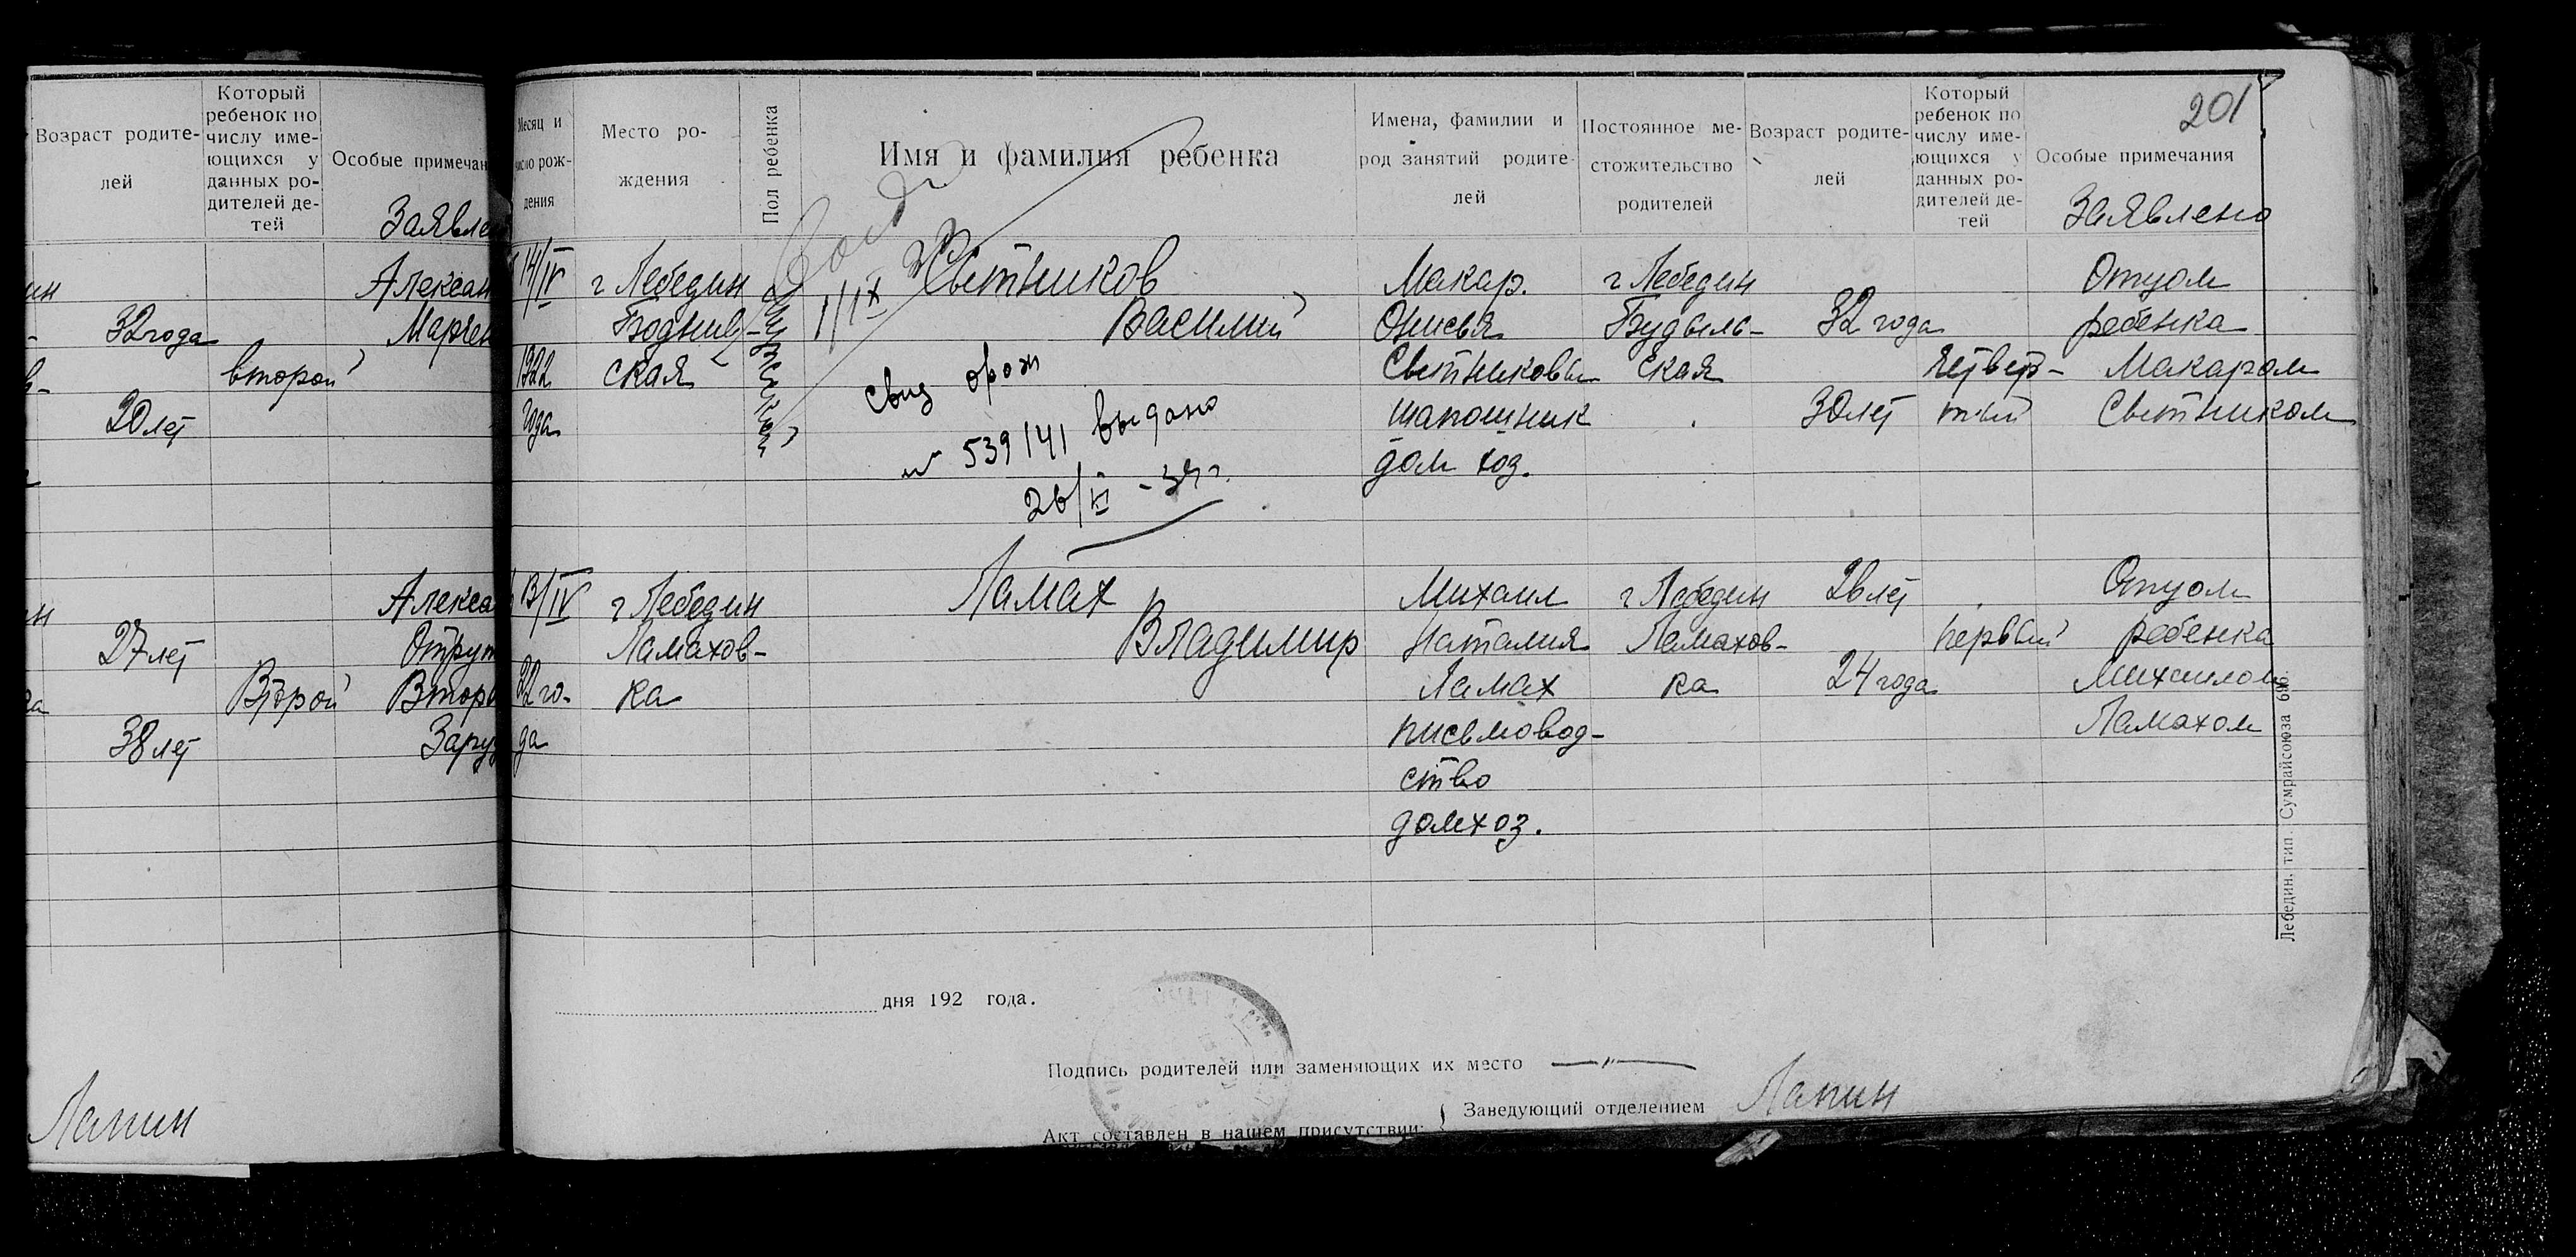 Возраст родите-
лей
Который
ребенок по
числу име-
ющихся у
данных ро-
дителей де-
тей
Особые примечан
Заявле
ин
32 года
20 лет
второй
Алексан
Марчен
27 лет
38 лет
Второй
Алекса
Отрут
Втор
Зару
Лапин
201
Месяц и
число рож-
дения
Место ро-
ждения
Пол ребенка
Имя и фамилия ребенка
Имена, фамилии и
род занятий родите-
лей
Постоянное ме-
стожительство
родителей
Возраст родите-
лей
Который
ребенок по
числу име-
ющихся у
данных ро-
дителей де-
тей
Особые примечания
Заявлено
14/IV
1922
года
г Лебедин
ская
Мужской
1/IX
Светников
Василий
свид о рож
№ 539/41 выдано
26/XI - 34 г.
Макар.
Онисья
Светниковы
шапошник
дом хоз.
г Лебедин
Будыль-
ская
32 года
30 лет
Четвер-
тый
Отцом
ребенка
Макаром
Светником
13/IV
22 го-
да
г Лебедин
Ламахов-
ка
Ламах
Владимир
Михаил
Наталия
Ламах
письмовод-
ство
домхоз.
г Лебедин
Ламахов-
ка
26 лет
24 года
первый
Отцом
ребенка
Михаилом
Ламахом
Лебедин, тип. Сумрайсоюза 696.
дня 192 года.
Подпись родителей или заменяющих их место —"—
Акт составлен в нашем присутствии: { Заведующий отделением Лапин